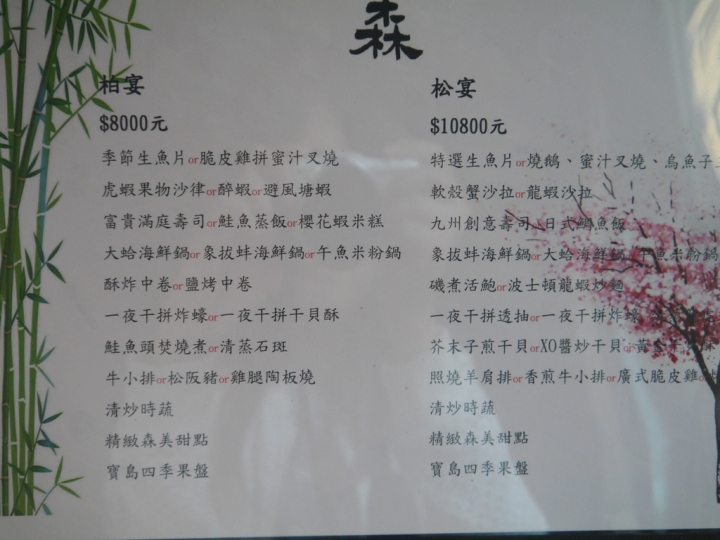 森
柏宴
$8000元
季節生魚片or脆皮雞拼蜜汁叉燒
虎蝦果物沙律or醉蝦or避風塘蝦
富貴滿庭壽司or鮭魚蒸飯or櫻花蝦米糕
大蛤海鮮鍋or象拔蚌海鮮鍋or午魚米粉鍋
酥炸中卷or鹽烤中卷
一夜干拼炸蠔or一夜干拼干貝酥
鮭魚頭焚燒煮or清蒸石斑
牛小排or松阪豬or雞腿陶板燒
清炒時蔬
精緻森美甜點
寶島四季果盤
松宴
$10800元
特選生魚片or燒鵝、蜜汁叉燒、烏魚子
軟殼蟹沙拉or龍蝦沙拉
九州創意壽司 日式鯛魚飯
象拔蚌海鮮鍋or大蛤海鮮鍋 午魚米粉鍋
磯煮活鮑or波士頓龍蝦炒麵
一夜干拼透抽or一夜干拼炸蠔
芥末子煎干貝orXO醬炒干貝or黃金
照燒羊肩排or香煎牛小排or廣式脆皮雞
清炒時蔬
精緻森美甜點
寶島四季果盤